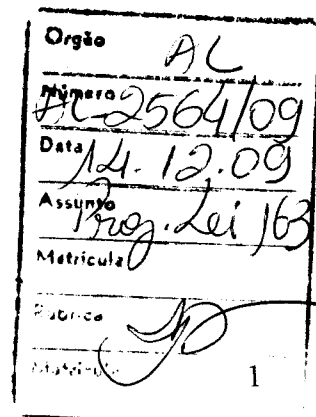 Orgão AL
Número AL-2564/09
Data 14.12.09
Assunto Proj. Lei 163
Matrícula
Rubrica
Matrícula 1